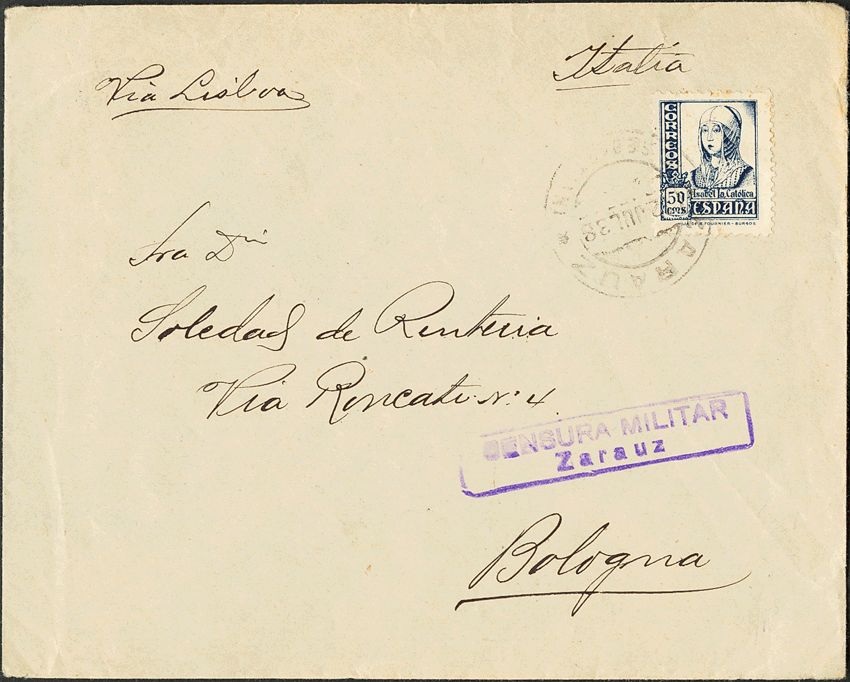 Italia
Via Lisboa
CORREOS
Isabel la Católica
50 cms
ESPAÑA
FOURNIER - BURGOS
2 JUL 38
ZARAUZ
Sra Dña
Soledad de Renteria
Via Roncati Nº 4
CENSURA MILITAR
Zarauz
Bologna